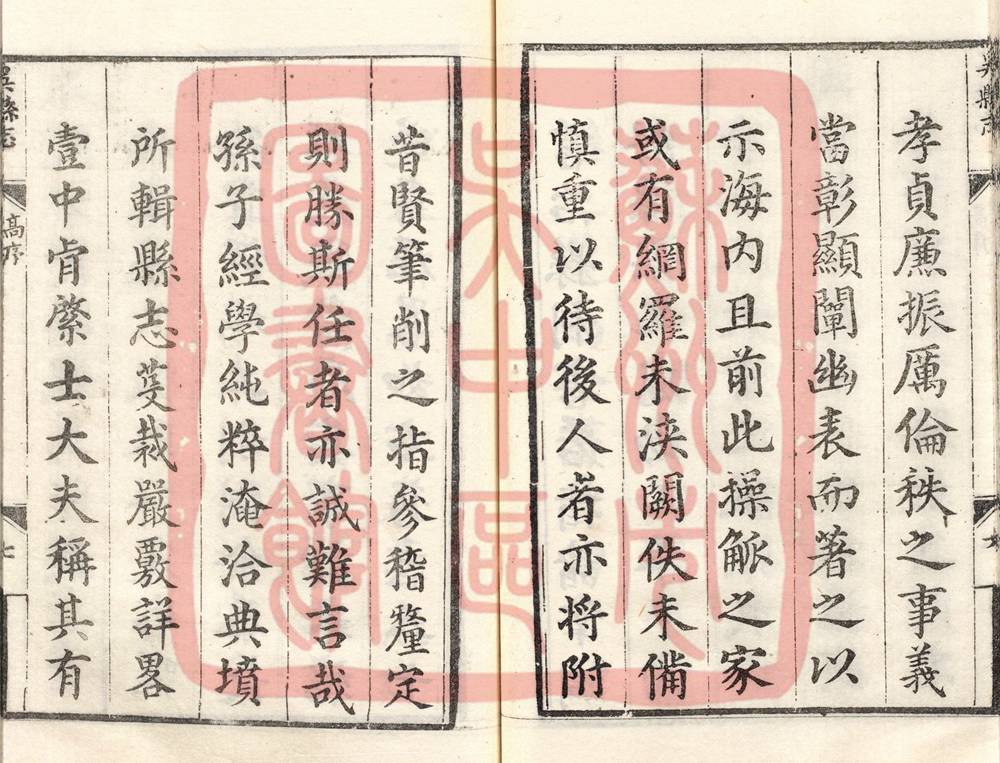 孝貞廉振厲倫秩之事義
當彰顯闡幽表而著之以
示海内且前此操觚之家
或有網羅未浹闕佚未備
慎重以待後人者亦将附
昔賢筆削之指參稽釐定
則勝斯任者亦誠難言哉
孫子經學純粹淹洽典墳
所輯縣志芟裁嚴覈詳畧
壹中肯綮士大夫稱其有
吳縣志
高序
七
蘇州市
吳中區
圖書館